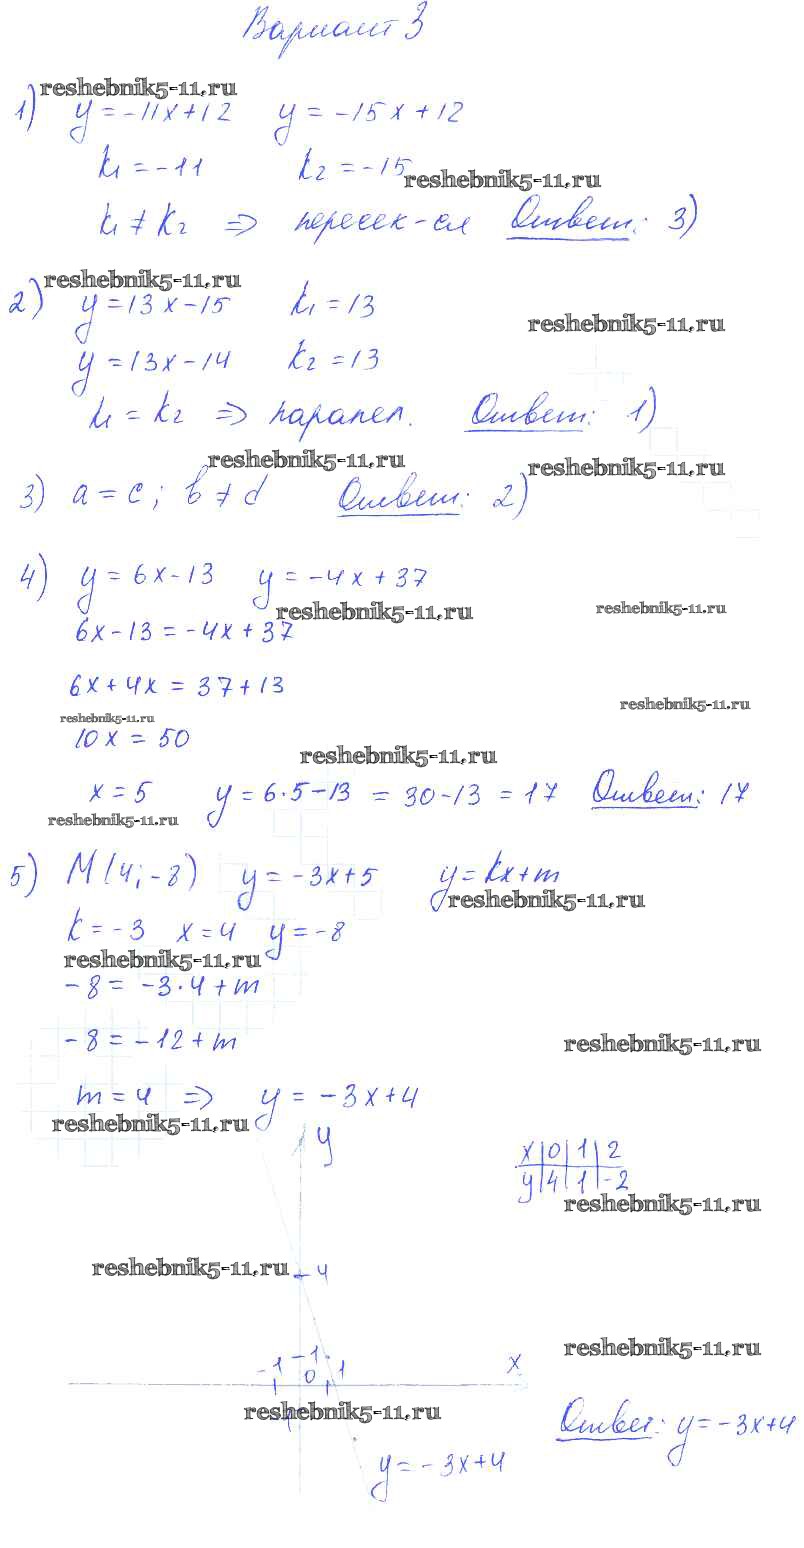 Вариант 3
reshebnik5-11.ru
1) y = -11x+12 y = -15x+12
k₁ = -11 k₂ = -15
reshebnik5-11.ru
k₁ ≠ k₂ => пересек-ся Ответ: 3)
reshebnik5-11.ru
2) y = 13x-15 k₁ = 13
reshebnik5-11.ru
y = 13x-14 k₂ = 13
k₁ = k₂ => парапел. Ответ: 1)
reshebnik5-11.ru
reshebnik5-11.ru
3) a = c; b ≠ d Ответ: 2)
4) y = 6x-13 y = -4x+37
reshebnik5-11.ru
reshebnik5-11.ru
6x-13 = -4x+37
6x+4x = 37+13
reshebnik5-11.ru
reshebnik5-11.ru
10x = 50
reshebnik5-11.ru
x = 5 y = 6·5-13 = 30-13 = 17 Ответ: 17
reshebnik5-11.ru
5) M(4; -8) y = -3x+5 y = kx+m
reshebnik5-11.ru
k = -3 x = 4 y = -8
reshebnik5-11.ru
-8 = -3·4+m
-8 = -12+m
reshebnik5-11.ru
m = 4 => y = -3x+4
reshebnik5-11.ru
y
x 0 1 2
y 4 1 -2
reshebnik5-11.ru
reshebnik5-11.ru
4
reshebnik5-11.ru
-1 1 0 1 x
reshebnik5-11.ru
Ответ: y = -3x+4
y = -3x+4